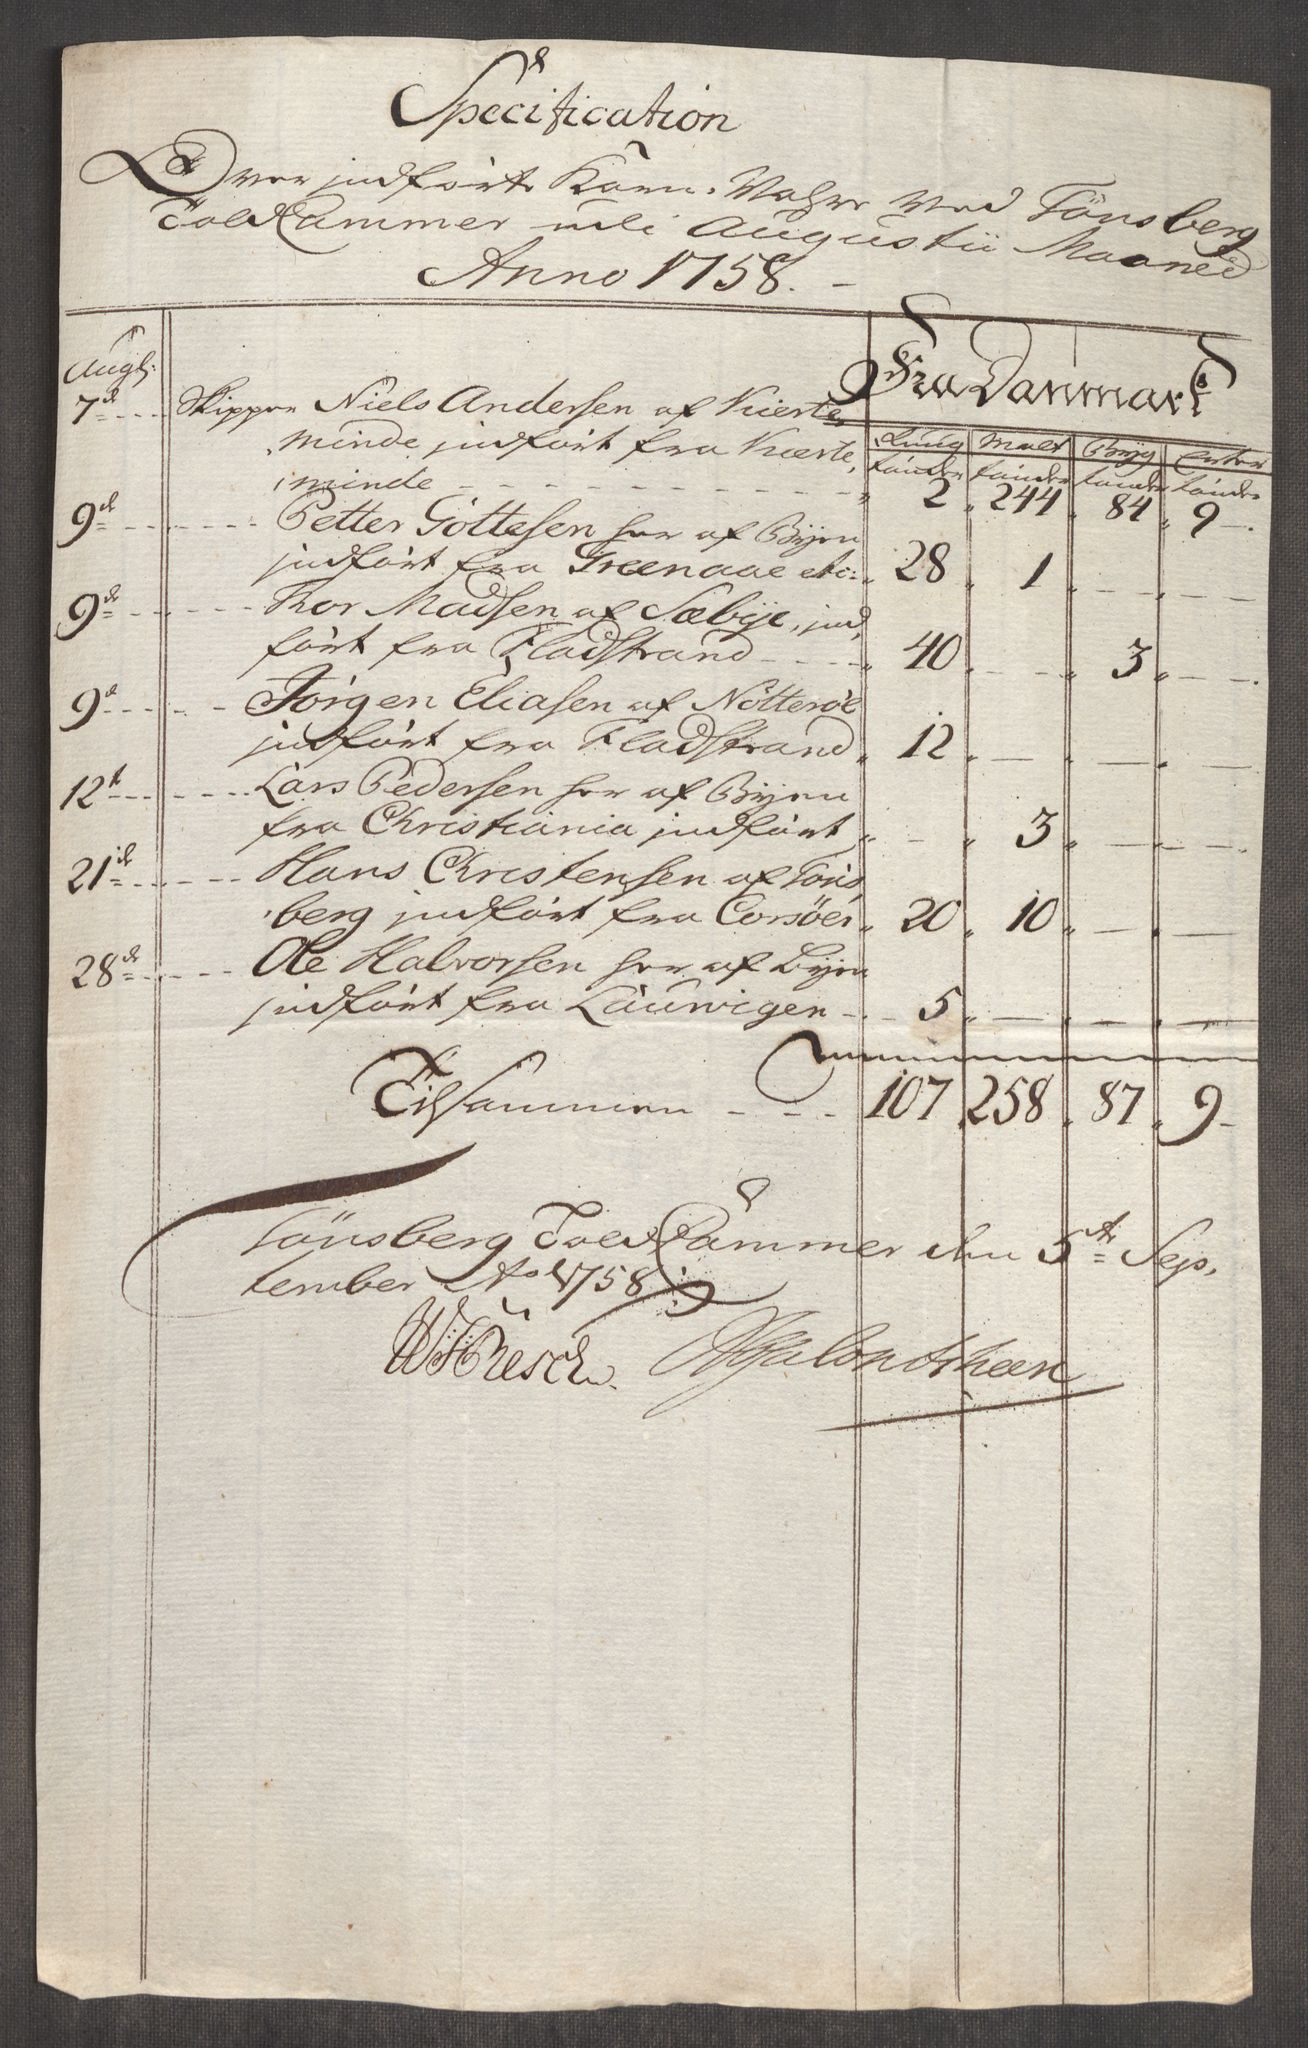 Specification
Over indførte Korn-Vahre ved Tönsberg
Told Cammer udi Augustii Maaned
Anno 1758.
Fra Danmark
Augti:
Rug Malt Byg Erter
tönder tönder tönder tönder
7de Skipper Niels Andersen af Kierte,
minde, indført fra Kierte,
minde 2 244 84 9
9de Petter Göttesen her af Byen
indført fra Greenaae etc: 28 1
9de Thor Madsen af Sæbye, ind,
ført fra Fladstrand 40 3
9de Jörgen Eliasen af Nötteröe
indført fra Fladstrand 12
12te Lars Pedersen her af Byen
fra Christiania indført 3
21de Hans Christensen af Töns,
berg indført fra Corsöer 20 10
28de Ole Halvorsen her af Byen
indført fra Laurvigen 5
Tilsammen 107 258 87 9
Tönsberg Told Cammer den 5te Sep,
tember Ao 1758